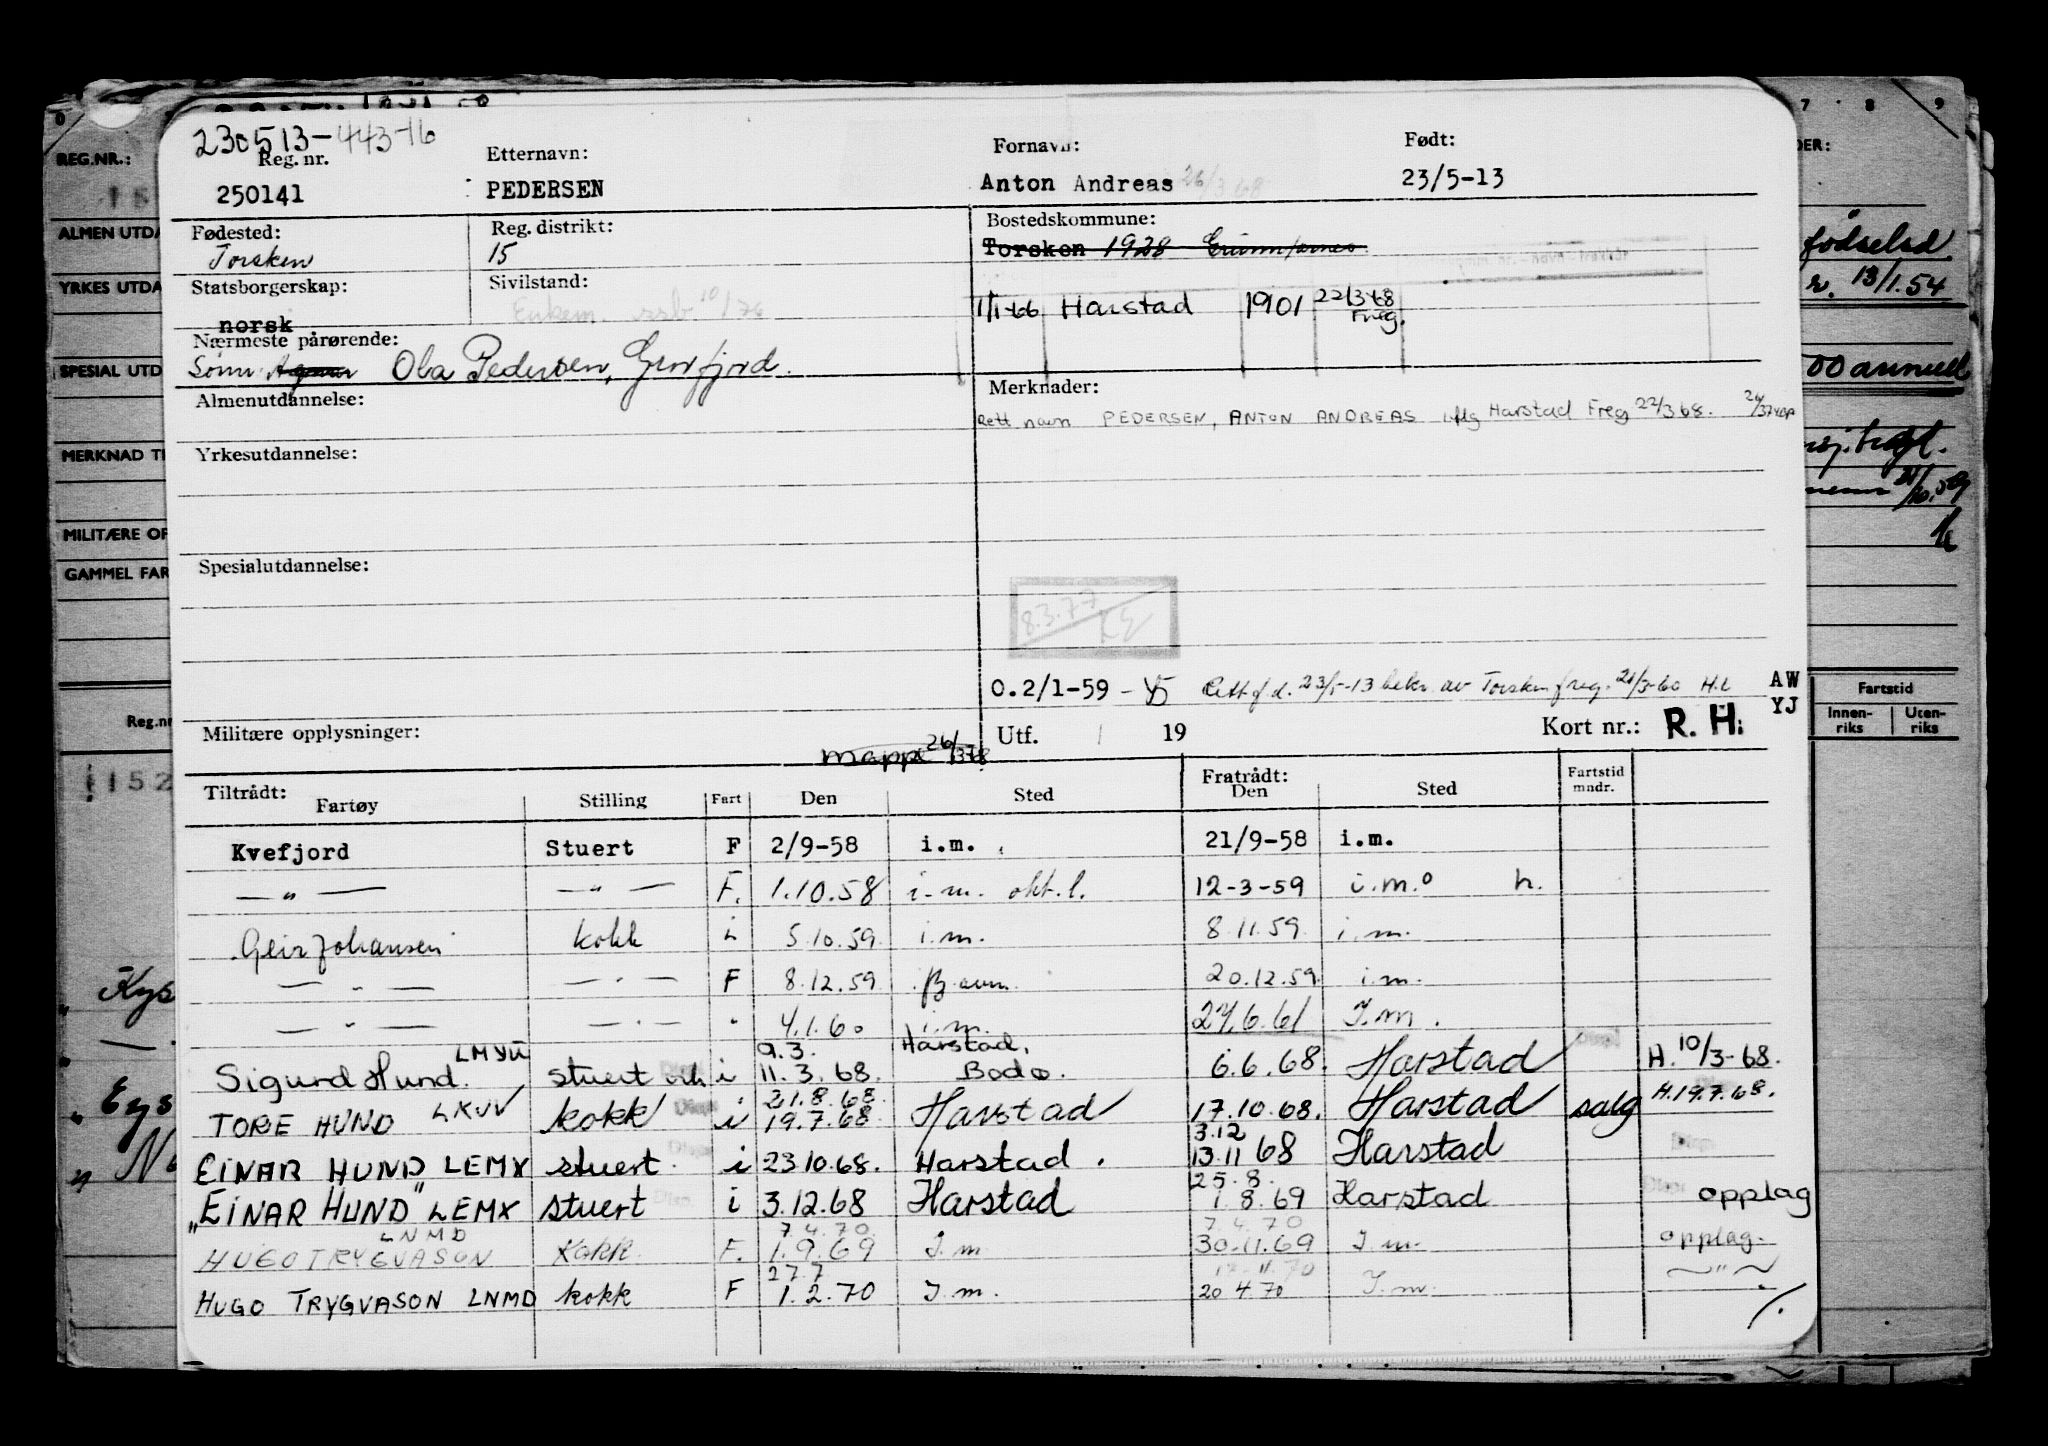 230513-443-16
REG.NR.:
Reg. nr.
Etternavn:
Fornavn:
Født:
250141
PEDERSEN
Anton Andreas 26/3 68
23/5-13
ALMEN UTDA
Fødested:
Reg. distrikt:
Bostedskommune:
Torsken
15
Torsken 1928
fødselsd
YRKES UTDA
Statsborgerskap:
Sivilstand:
r. 13/1.54
norsk
Enkem. ssb 10/76
1/1-66 Harstad 1901 22/3-68 Freg.
Nærmeste pårørende:
SPESIAL UTD
Sønn Ola Pedersen, Grovfjord.
Almenutdannelse:
Merknader:
Rett navn PEDERSEN, ANTON ANDREAS iflg Harstad Freg 22/3 68.
MERKNAD TI
Yrkesutdannelse:
MILITÆRE OP
GAMMEL FAR
Spesialutdannelse:
8.3.77
0.2/1-59
Rett f.d. 23/5-13 bekr. av Torsken freg. 21/3-60 H.L
AW
YJ
Fartstid
Innen-riks
Uten-riks
Reg.nr
Militære opplysninger:
Mappe 26/3 78
Utf. 19
Kort nr.: R. H.
1152
Tiltrådt:
Fartøy Stilling Fart Den Sted
Fratrådt:
Den Sted
Fartstid mndr.
Kvefjord Stuert F 2/9-58 i.m. 21/9-58 i.m.
— " — — " — F. 1.10.58 i.m. okt.l. 12-3-59 i.m. h.
Geir Johansen kokk 5.10.59 i.m. 8.11.59. i.m.
— " — — " — F 8.12.59 20.12.59. i.m.
— " — — " — " 4.1.60 i.m. 27.6.61 I.m.
9.3. Harstad,
Sigurd Hund. stuert i 11.3.68. Bodø. 6.6.68. Harstad H. 10/3-68.
21.8.68
TORE HUND LKUV kokk i 19.7.68 Harstad 17.10.68. Harstad salg H.19.7.68.
3.12
EINAR HUND LEMX stuert i 23.10.68. Harstad. 13.11 68 Harstad
25.8.
"EINAR HUND" LEMX stuert i 3.12.68 Harstad 1.8.69 Harstad opplag
LNMD 7.4.70 7.4.70
HUGO TRYGVASON Kokk F. 1.9.69 I.m 30.11.69 I.m. opplag.
27.7
HUGO TRYGVASON LNMD kokk F 1.2.70 I.m. 20 4 70 I.m. — " —